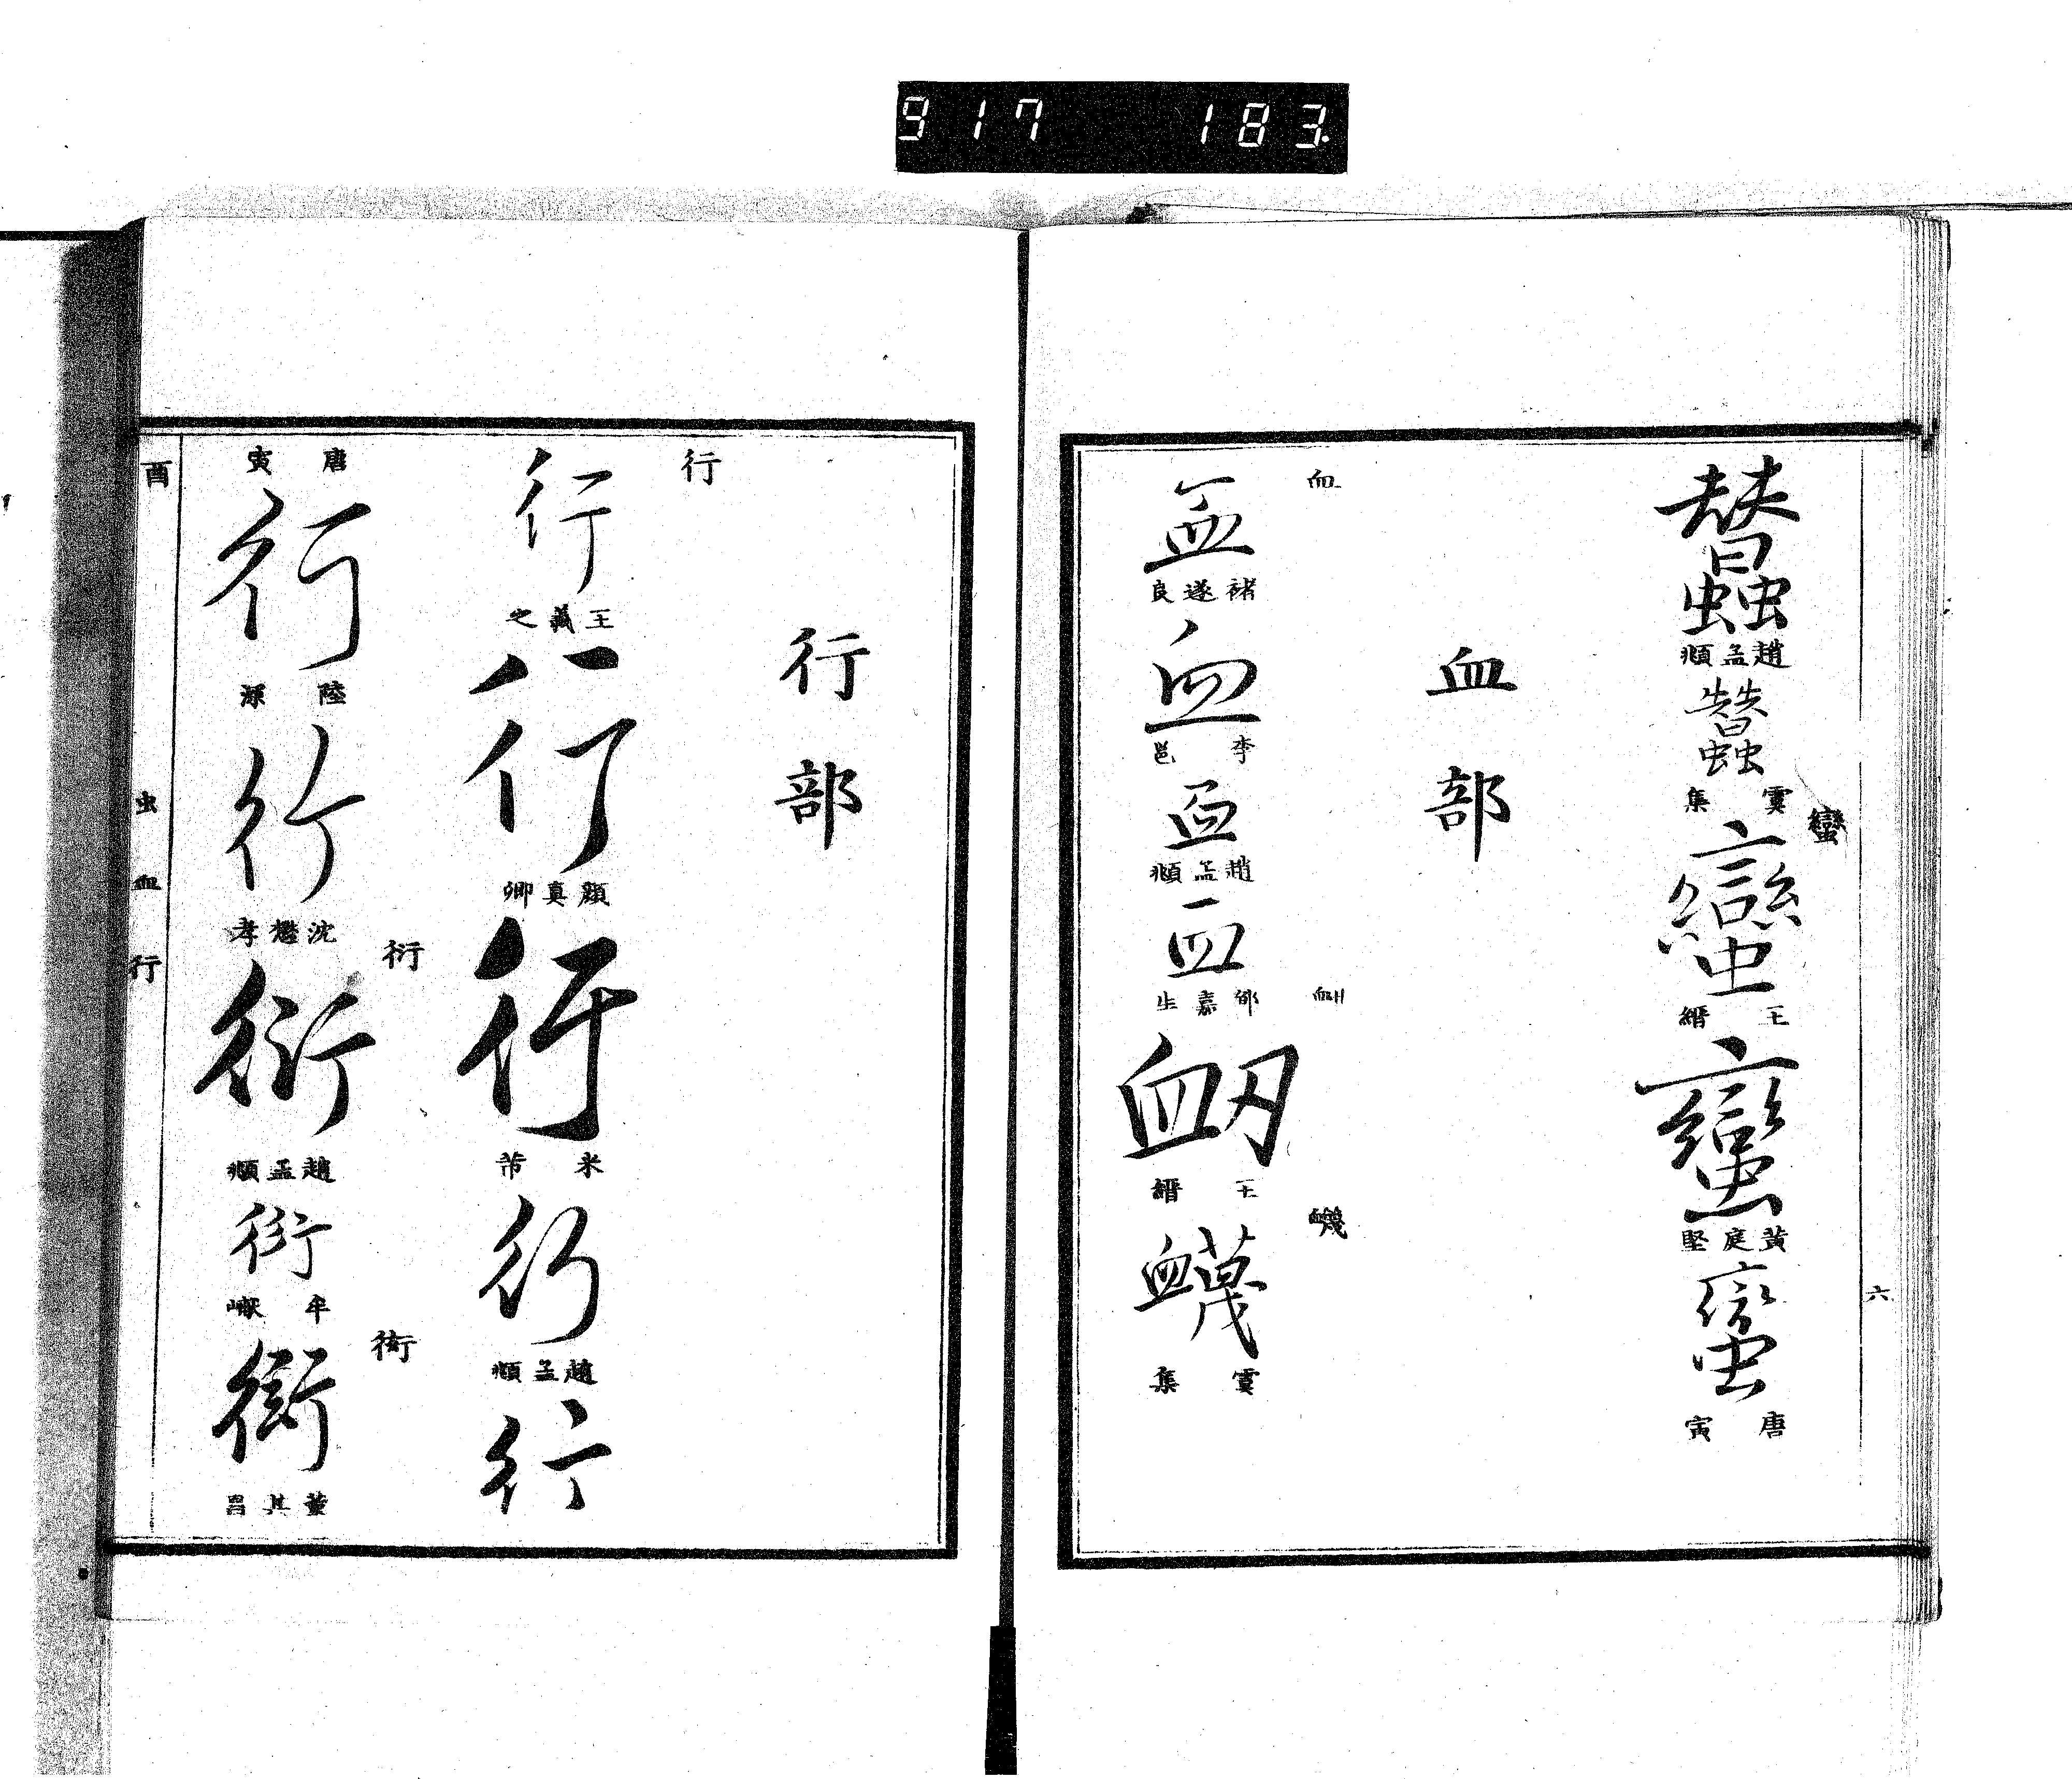 917 183.
蠶
趙孟頫
蠶
虞集
蠻
蠻
王縉
蠻
黃庭堅
蠻
唐寅
六
血部
血
血
褚遂良
血
李邕
血
趙孟頫
血
鄧嘉生
衂
王縉
衊
衊
虞集
行部
行
行
王羲之
行
顏真卿
行
米芾
行
趙孟頫
行
唐寅
行
陸深
行
沈懋孝
衍
衍
趙孟頫
衍
牟巘
衒
董其昌
酉
虫
血
行